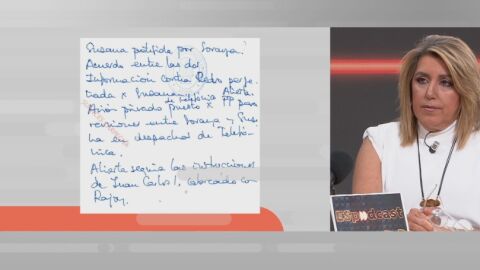 Susana pillada por Soraya.
Acuerdo entre las dos
Información contra Pedro
dada x Susana Alierta.
de Telefónica
Avión privado puesto x PP para
reuniones entre Soraya y Susa
na en despachos de Telefó
nica.
Alierta seguía las instrucciones
de Juan Carlos I,
con
Rajoy.
ESpodcast